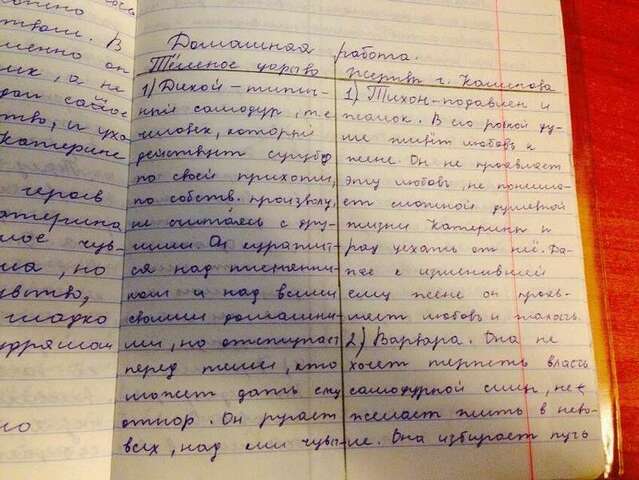 можно
В
он
а не
самое
и
Катерине
героев
но
гладко
Домашняя работа.
Тёмное царство
1) Дикой - типич-
ный самодур, т.е
человек, который
действует сугубо
по своей прихоти,
по собств. произволу,
не считаясь с дру-
гими. Он куражит-
ся над племянни-
ком и над всеми
своими домашни-
ми, но отступает
перед теми, кто
может дать ему
отпор. Он ругает
всех, над кем
жертвы г. Калинова
1) Тихон-подавлен и
жалок. В его робкой ду-
ше живёт любовь к
жене. Он не проявляет
эту любовь, не понима-
ет сложной душевной
жизни Катерины и
рад уехать от неё. Да-
же к изменившей
ему жене он прояв-
ляет любовь и жалость.
2) Варвара. Она не
хочет терпеть власть
самодурной силы, не
желает жить в нево-
ле. Она избирает путь